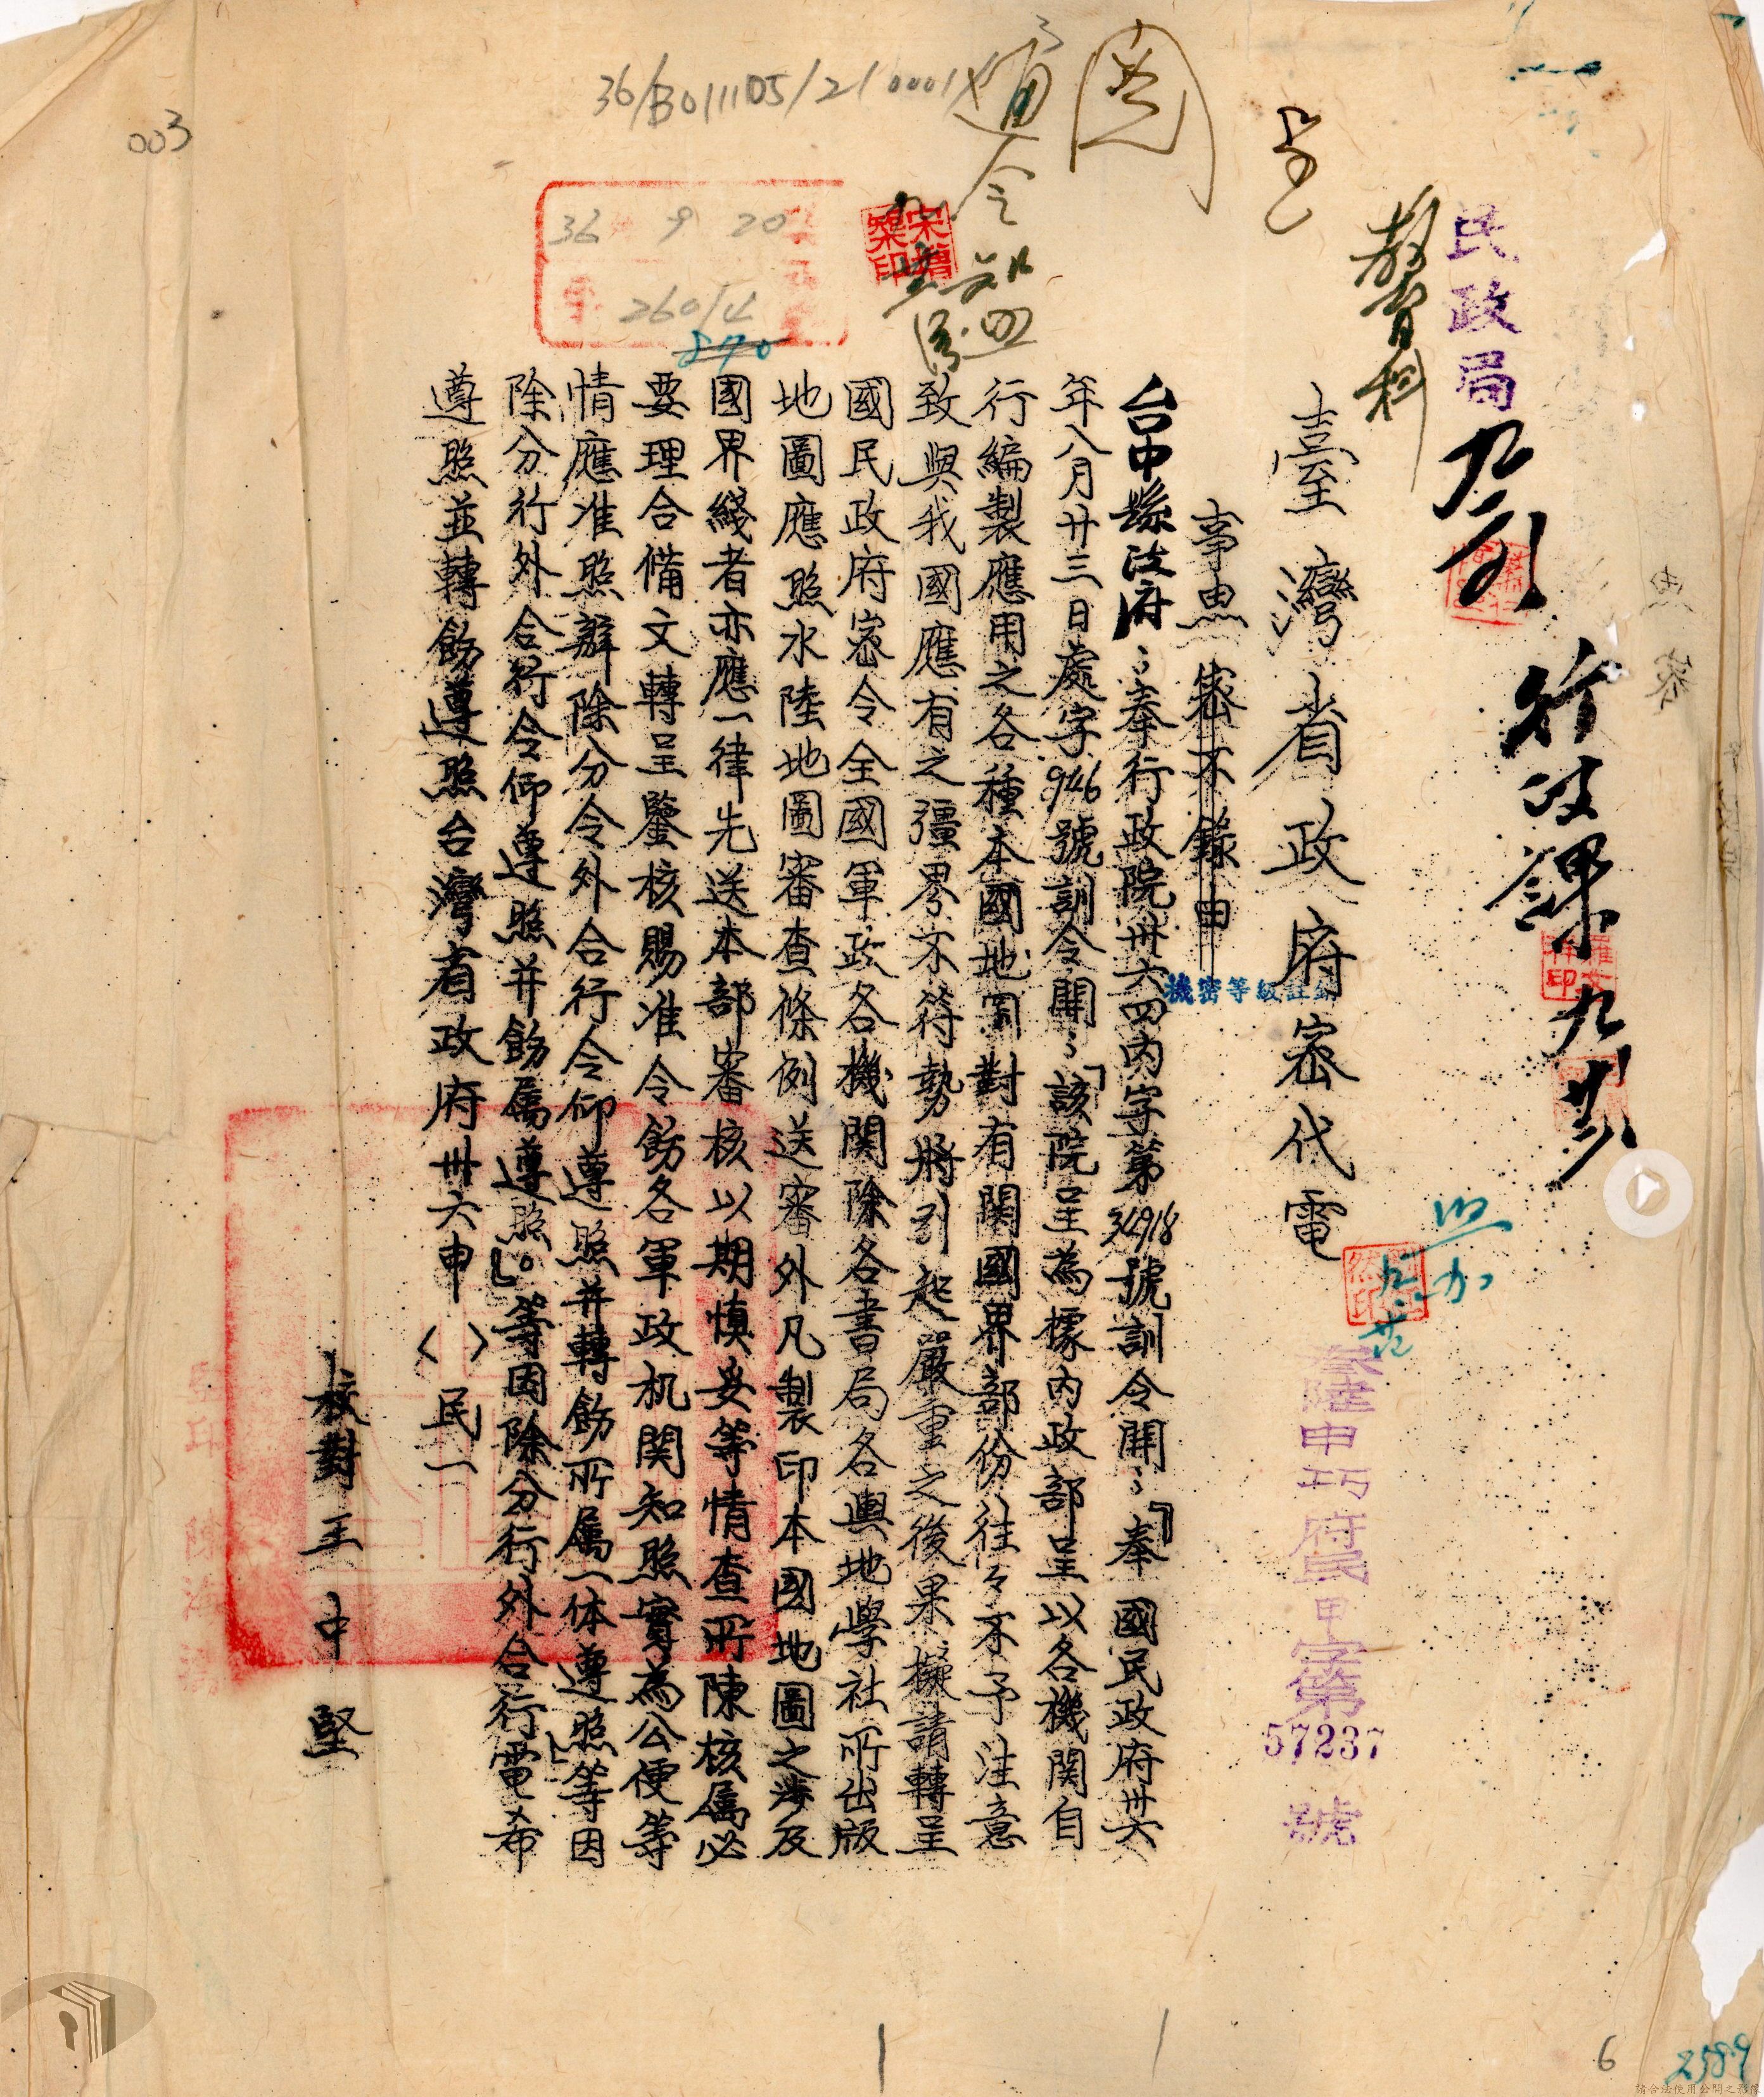 民政局
教育科
臺灣省政府密代電
參陸申巧府民甲字第57237號
機密等級註銷
事由 密不錄由
台中縣政府:奉行政院卅六四內字第34918號訓令開:「奉國民政府卅六
年八月廿三日處字946號訓令開:「該院呈為據內政部呈以各機関自
行編製應用之各種本國地図對有関國界部份往々不予注意
致與我國應有之疆界不符勢將引起嚴重之後果擬請轉呈
國民政府密令全國軍政各機関除各書局各輿地學社所出版
地圖應照水陸地圖審查條例送審外凡製印本國地圖之涉及
國界綫者亦應一律先送本部審核以期慎妥等情查所陳核屬必
要理合備文轉呈鑒核賜准令飭各軍政机関知照實為公便等
情應准照辦除分令外合行令仰遵照并轉飭所属一体遵照」等因
除分行外合行令仰遵照并飭属遵照」。等因除分行外合行電希
遵照並轉飭遵照台灣省政府卅六申〈 〉民一
校對王中堅
36/B011105/2/0001
003
36 9 20
26014
870
宋增榘印
通令
6
2589
請合法使用公開之影像